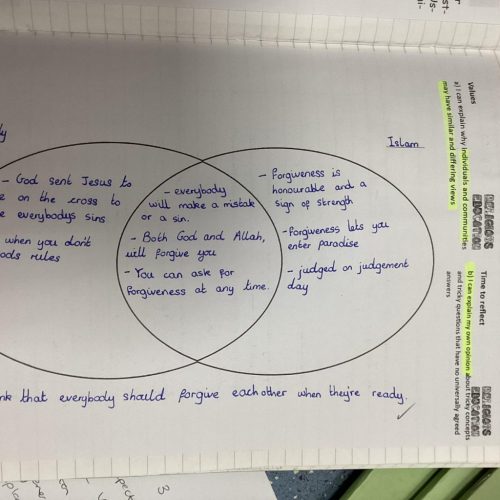 Values
a) I can explain why individuals and communities
may have similar and differing views
RELIGIOUS
EDUCATION
Time to reflect
b) I can explain my own opinion about tricky concepts
and tricky questions that have no universally agreed
answers
RELIGIOUS
EDUCATION
Islam
- God sent Jesus to
on the cross to
everybodys sins
when you don't
rules
- everybody
will make a mistake
or a sin.
- Both God and Allah,
will forgive you
- You can ask for
forgiveness at any time.
- Forgiveness is
honourable and a
sign of strength
- Forgiveness lets you
enter paradise
- judged on judgement
day
that everybody should forgive each other when they're ready.